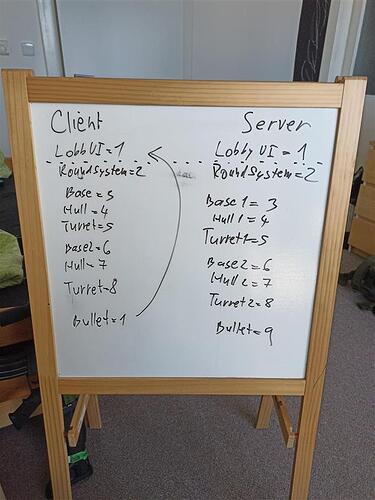 Client
Lobby UI = 1
RoundSystem = 2
Base = 3
Hull = 4
Turret = 5
Base2 = 6
Hull = 7
Turret = 8
Bullet = 1
Server
Lobby UI = 1
RoundSystem = 2
Base 1 = 3
Hull 1 = 4
Turret 1 = 5
Base2 = 6
Hull 2 = 7
Turret 2 = 8
Bullet = 9